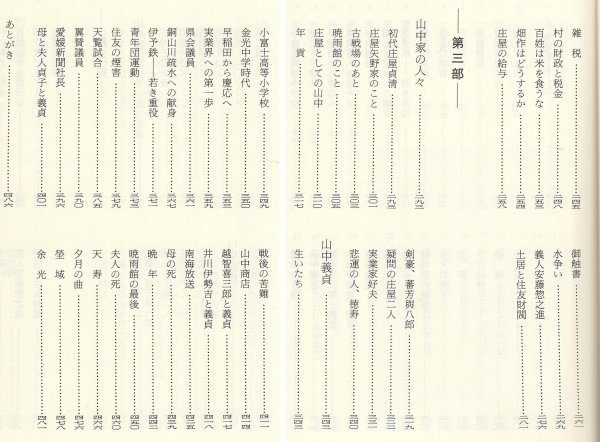 雑税……二四五
村の財政と税金……二四八
百姓は米を食うな……二五一
畑作はどうするか
庄屋の給与……二五八
御触書……二六一
水争い
義人安藤惣之進
土居と住友財閥……二八一
第三部
山中家の人々……二九三
初代庄屋貞清……二九三
庄屋矢野家のこと……三〇一
古戦場のあと……三〇三
暁雨館のこと……三〇五
庄屋としての山中……三一〇
年貢……三一七
剣豪、蕃芳與八郎……三一九
疑問の庄屋二人……三二三
実業家好夫
悲運の人、徳寿……三四〇
山中義貞……三四三
生いたち……三四三
小富士高等小学校……三四九
金光中学時代……三五一
早稲田から慶応へ……三五五
実業界への第一歩……三五九
県会議員……三六一
銅山川疏水への献身……三六七
伊予鉄――若き重役……三七二
青年団運動……三七七
住友の煙害……三七九
天覧試合……三八五
翼賛議員……三九〇
愛媛新聞社長……三九六
母と夫人貞子と義貞……四〇一
戦後の苦難……四一一
山中商店……四一四
越智喜三郎と義貞……四一七
井川伊勢吉と義貞……四一八
南海放送……四二八
母の死……四三九
晩年……四四八
暁雨館の最後……四五〇
夫人の死……四六〇
天寿……四七六
夕月の曲……四七七
塋域……四七八
余光……四八一
あとがき……四八六